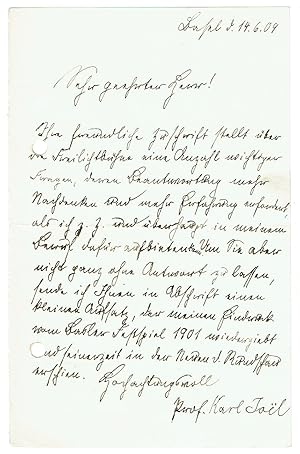 Basel d. 14.6.09
Sehr geehrter Herr!
Ihre freundliche Zuschrift stellt über
die Freilichtbühne eine Anzahl wichtiger
Fragen, deren Beantwortung mehr
Nachdenken und mehr Erfahrung erfordert,
als ich z. Z. und überhaupt in meinem
Beruf dafür aufbiete. Um Sie aber
nicht ganz ohne Antwort zu lassen,
sende ich Ihnen in Abschrift einen
kleinen Aufsatz, der meinen Eindruck
vom Basler Festspiel 1901 wiedergiebt
und seinerzeit in der Neuen d. Rundschau
erschien. Hochachtungsvoll
Prof. Karl Joël